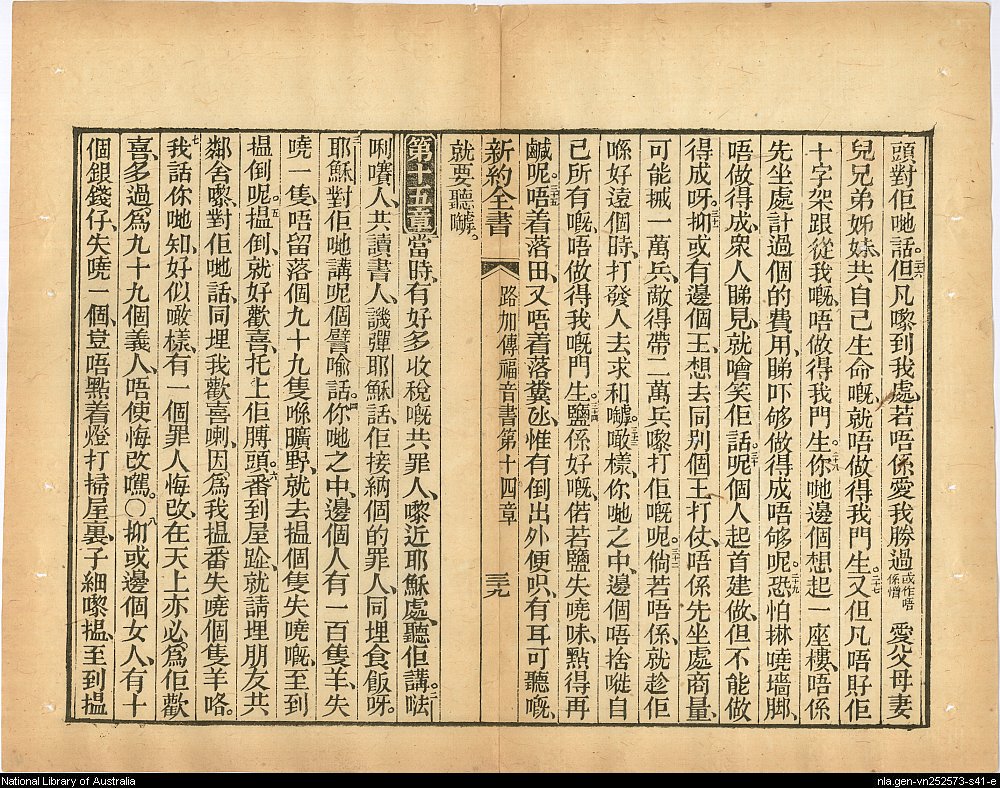 頭對佢哋話。二十六但凡嚟到我處、若唔係愛我勝過或作唔係憎愛父母妻
兒兄弟姊妹、共自己生命嘅、就唔做得我門生。二十七又但凡唔㧡佢
十字架跟從我嘅、唔做得我門生。二十八你哋邊個想起一座樓、唔係
先坐處計過個的費用、睇吓够做得成唔够呢。二十九恐怕𢱕嘵墻脚、
唔做得成、衆人睇見、就噲笑佢話。三十呢個人起首建做、但不能做
得成呀。三十一抑或有邊個王、想去同别個王打仗、唔係先坐處商量、
可能搣一萬兵、敵得帶二萬兵嚟打佢嘅呢。三十二倘若唔係、就趁佢
喺好遠個時、打發人去求和嘑。三十三噉樣、你哋之中、邊個唔捨嘥自
己所有嘅、唔做得我嘅門生。三十四鹽係好嘅、偌若鹽失嘵味、點得再
鹹呢。三十五唔着落田、又唔着落糞氹、惟有倒出外便呮、有耳可聽嘅、
就要聽嘑。
新約全書 路加傳福音書第十四章 三十九
第十五章 一當時、有好多收稅嘅共罪人、嚟近耶穌處、聽佢講。二㗓
唎㘔人、共讀書人、譏彈耶穌話、佢接納個的罪人、同埋食飯呀。
三耶穌對佢哋講呢個譬喻話。四你哋之中、邊個人有一百隻羊、失
嘵一隻、唔留落個九十九隻喺曠野、就去搵個隻失嘵嘅、至到
搵倒呢。五搵倒、就好歡喜、托上佢膊頭。六番到屋跕、就請埋朋友共
鄰舍嚟、對佢哋話、同埋我歡喜喇、因爲我搵番失嘵個隻羊咯。
七我話你哋知、好似噉樣、有一個罪人悔改、在天上亦必爲佢歡
喜、多過爲九十九個義人、唔使悔改嘅。〇八抑或邊個女人、有十
個銀錢仔、失嘵一個、豈唔點着燈打掃屋裏、子細嚟搵、至到搵